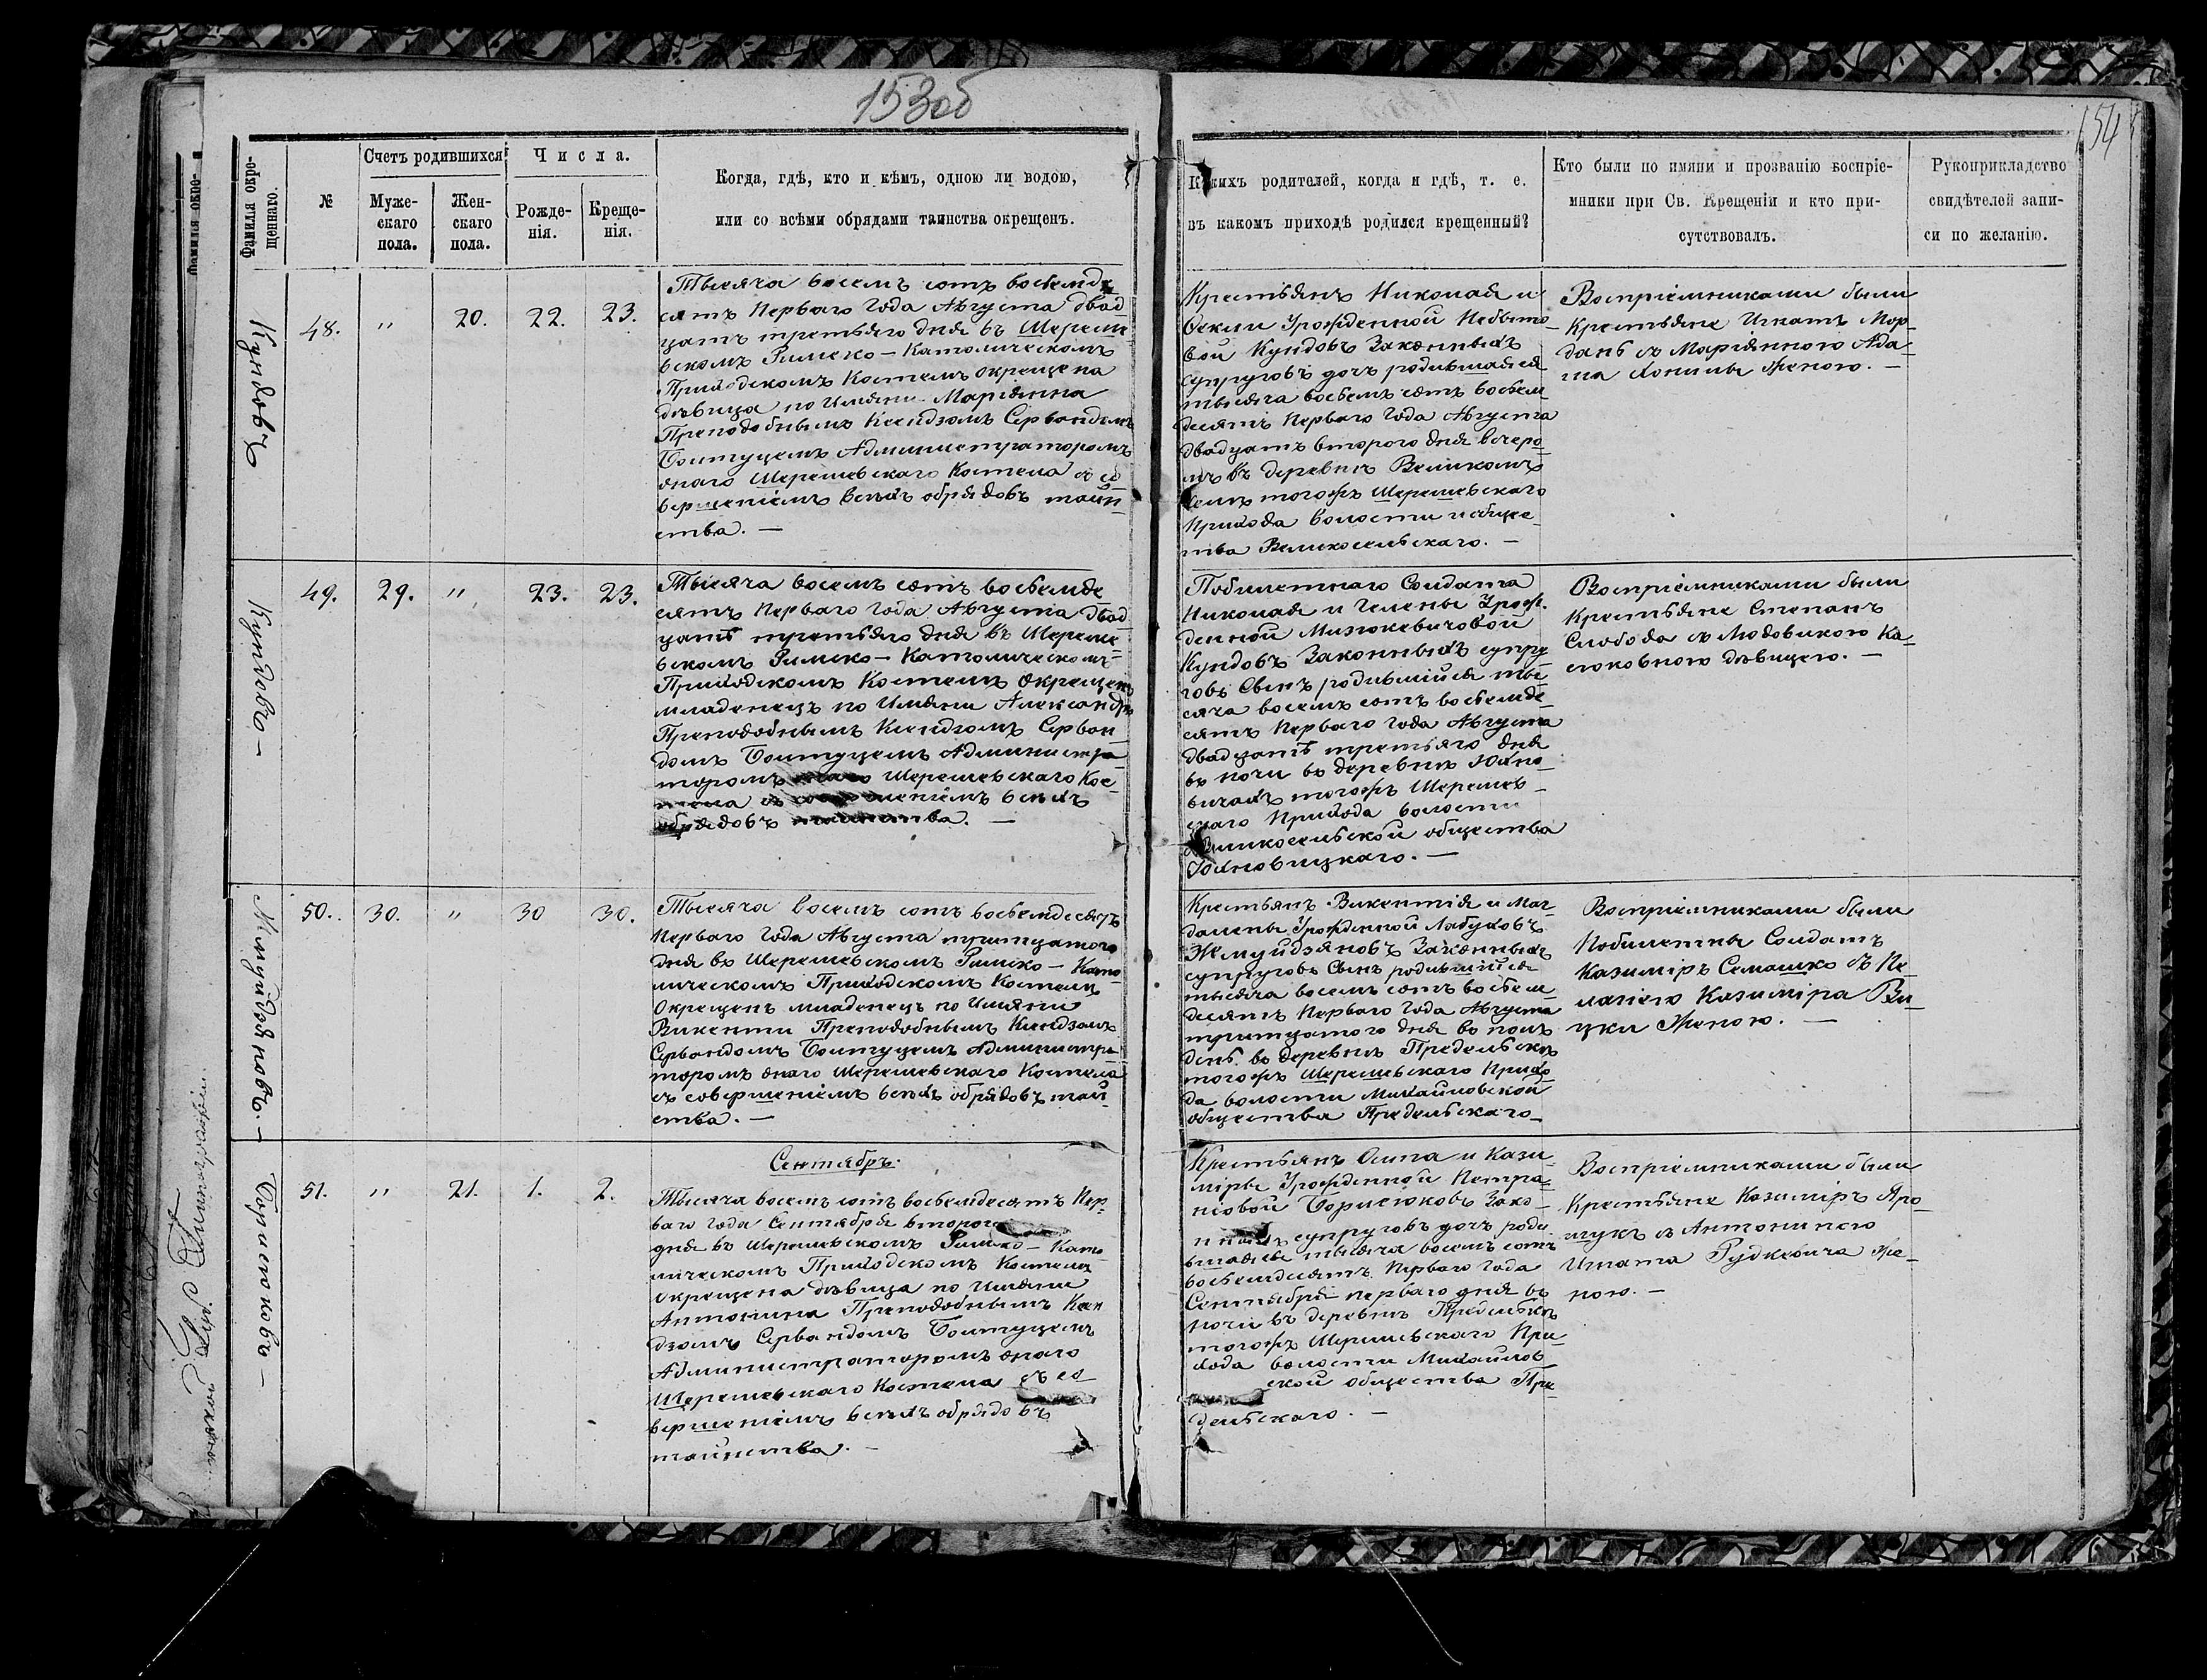 153об
154
Фамилія окре-
щеннаго.
№
Счетъ родившихся
Муже-
скаго
пола.
Жен-
скаго
пола.
Числа.
Рожде-
нія.
Креще-
нія.
Когда, гдѣ, кто и кѣмъ, одною ли водою,
или со всѣми обрядами таинства окрещенъ.
Какихъ родителей, когда и гдѣ, т. е.
въ какомъ приходѣ родился крещенный?
Кто были по имяни и прозванію воспріе-
мники при Св. Крещеніи и кто при-
сутствовалъ.
Рукоприкладство
свидѣтелей запи-
си по желанію.
Кундовъ
48.
"
20.
22.
23.
Тысяча восемь сотъ восьемде
сятъ Перваго Года Августа двад
цать третьяго дня въ Шереше
вскомъ Римско-Католическомъ
Приходскомъ Костелѣ окрещена
дѣвица по Имяни Маріянна
Преподобнымъ Ксендзомъ Сервандомъ
Болтуцемъ Администраторомъ
онаго Шерешевскаго Костела съ со
вершеніемъ всѣхъ обрядовъ таин
ства. —
Крестьянъ Николая и
Феклы Урожденной Небыто-
вой Кундовъ Законныхъ
супруговъ дочь родившаяся
тысяча восьемъ сотъ восьем
десятъ Перваго Года Августа
двадцать втораго дня вечеро
мъ въ деревнѣ Великомъ
Селѣ тогожъ Шерешевскаго
Прихода волости и общес
тва Великосельскаго. —
Воспріемниками были
Крестьяне Игнатъ Мор-
дань съ Маріянною Ада-
ма женою. —
Кундовъ —
49.
29.
"
23.
23.
Тысяча восемь сотъ восьемде
сятъ Перваго Года Августа двад
цать третьяго дня въ Шереше
вскомъ Римско-Католическомъ
Приходскомъ Костелѣ Окрещенъ
младенецъ по Имяни Александръ
Преподобнымъ Ксендзомъ Серван
домъ Болтуцемъ Администра
торомъ онаго Шерешевскаго Кос-
тела съ совершеніемъ всѣхъ
обрядовъ таинства. —
Побилетнаго Солдата
Николая и Гелены Урож-
денной Мизюкевичовой
Кундовъ Законныхъ супру
говъ Сынъ родившійся ты
сяча восемь сотъ восьемде
сятъ Перваго Года Августа
двадцать третьяго дня
въ ночи въ деревнѣ Юхно-
вичахъ тогожъ Шерешев-
скаго Прихода волости
Великосельской общества
Юхновицкаго. —
Воспріемниками были
Крестьяне Степанъ
Слобода съ Людовикою Ка-
сюковною дѣвицею. —
Жмуйдзяновъ. —
50.
30.
"
30
30.
Тысяча восемь сотъ восьемдесятъ
Перваго Года Августа тритцатого
дня въ Шерешевскомъ Римско-Като
лическомъ Приходскомъ Костелѣ
Окрещенъ младенецъ по Имяни
Викентій Преподобнымъ Ксендзомъ
Сервандомъ Болтуцемъ Администра
торомъ онаго Шерешевскаго Костела
съ совершеніемъ всѣхъ обрядовъ таин
ства. —
Крестьянъ Викентія и Маг
далены Урожденной Лабуковъ
Жмуйдзяновъ Законныхъ
супруговъ Сынъ родившійся
тысяча восемь сотъ восьем
десятъ Перваго Года Августа
тритцатого дня въ пол
день въ деревнѣ Предельскѣ
тогожъ Шерешевскаго Прихо
да волости Михайловской
общества Предельскаго
Воспріемниками были
Побилетны Солдатъ
Казиміръ Семашко съ Пе
лагіею Казиміра Ви-
цки Женою. —
Борисюковъ —
51.
"
21.
1.
2.
Сентябрь.
Тысяча восемь сотъ восьемдесятъ Пер
ваго года Сентября второго
дня въ Шерешевскомъ Римско-Като
лическомъ Приходскомъ Костелѣ
окрещена дѣвица по Имяни
Антонина Преподобнымъ Ксен
дзомъ Сервандомъ Болтуцемъ
Администраторомъ онаго
Шерешевскаго Костела съ со
вершеніемъ всѣхъ обрядовъ
таинства. —
Крестьянъ Осипа и Кази
міры Урожденной
Борисюковъ Зако-
нныхъ супруговъ дочь роди
вшаяся тысяча восемь сотъ
восьемдесятъ Перваго Года
Сентября перваго дня въ
ночи въ деревнѣ Предельскѣ
тогожъ Шерешевскаго При
хода волости Михайлов
ской общества Пре
дельскаго. —
Воспріемниками были
Крестьяне Казиміръ Яро
шукъ съ Антониною
Игната Рудкевича же-
ною. —